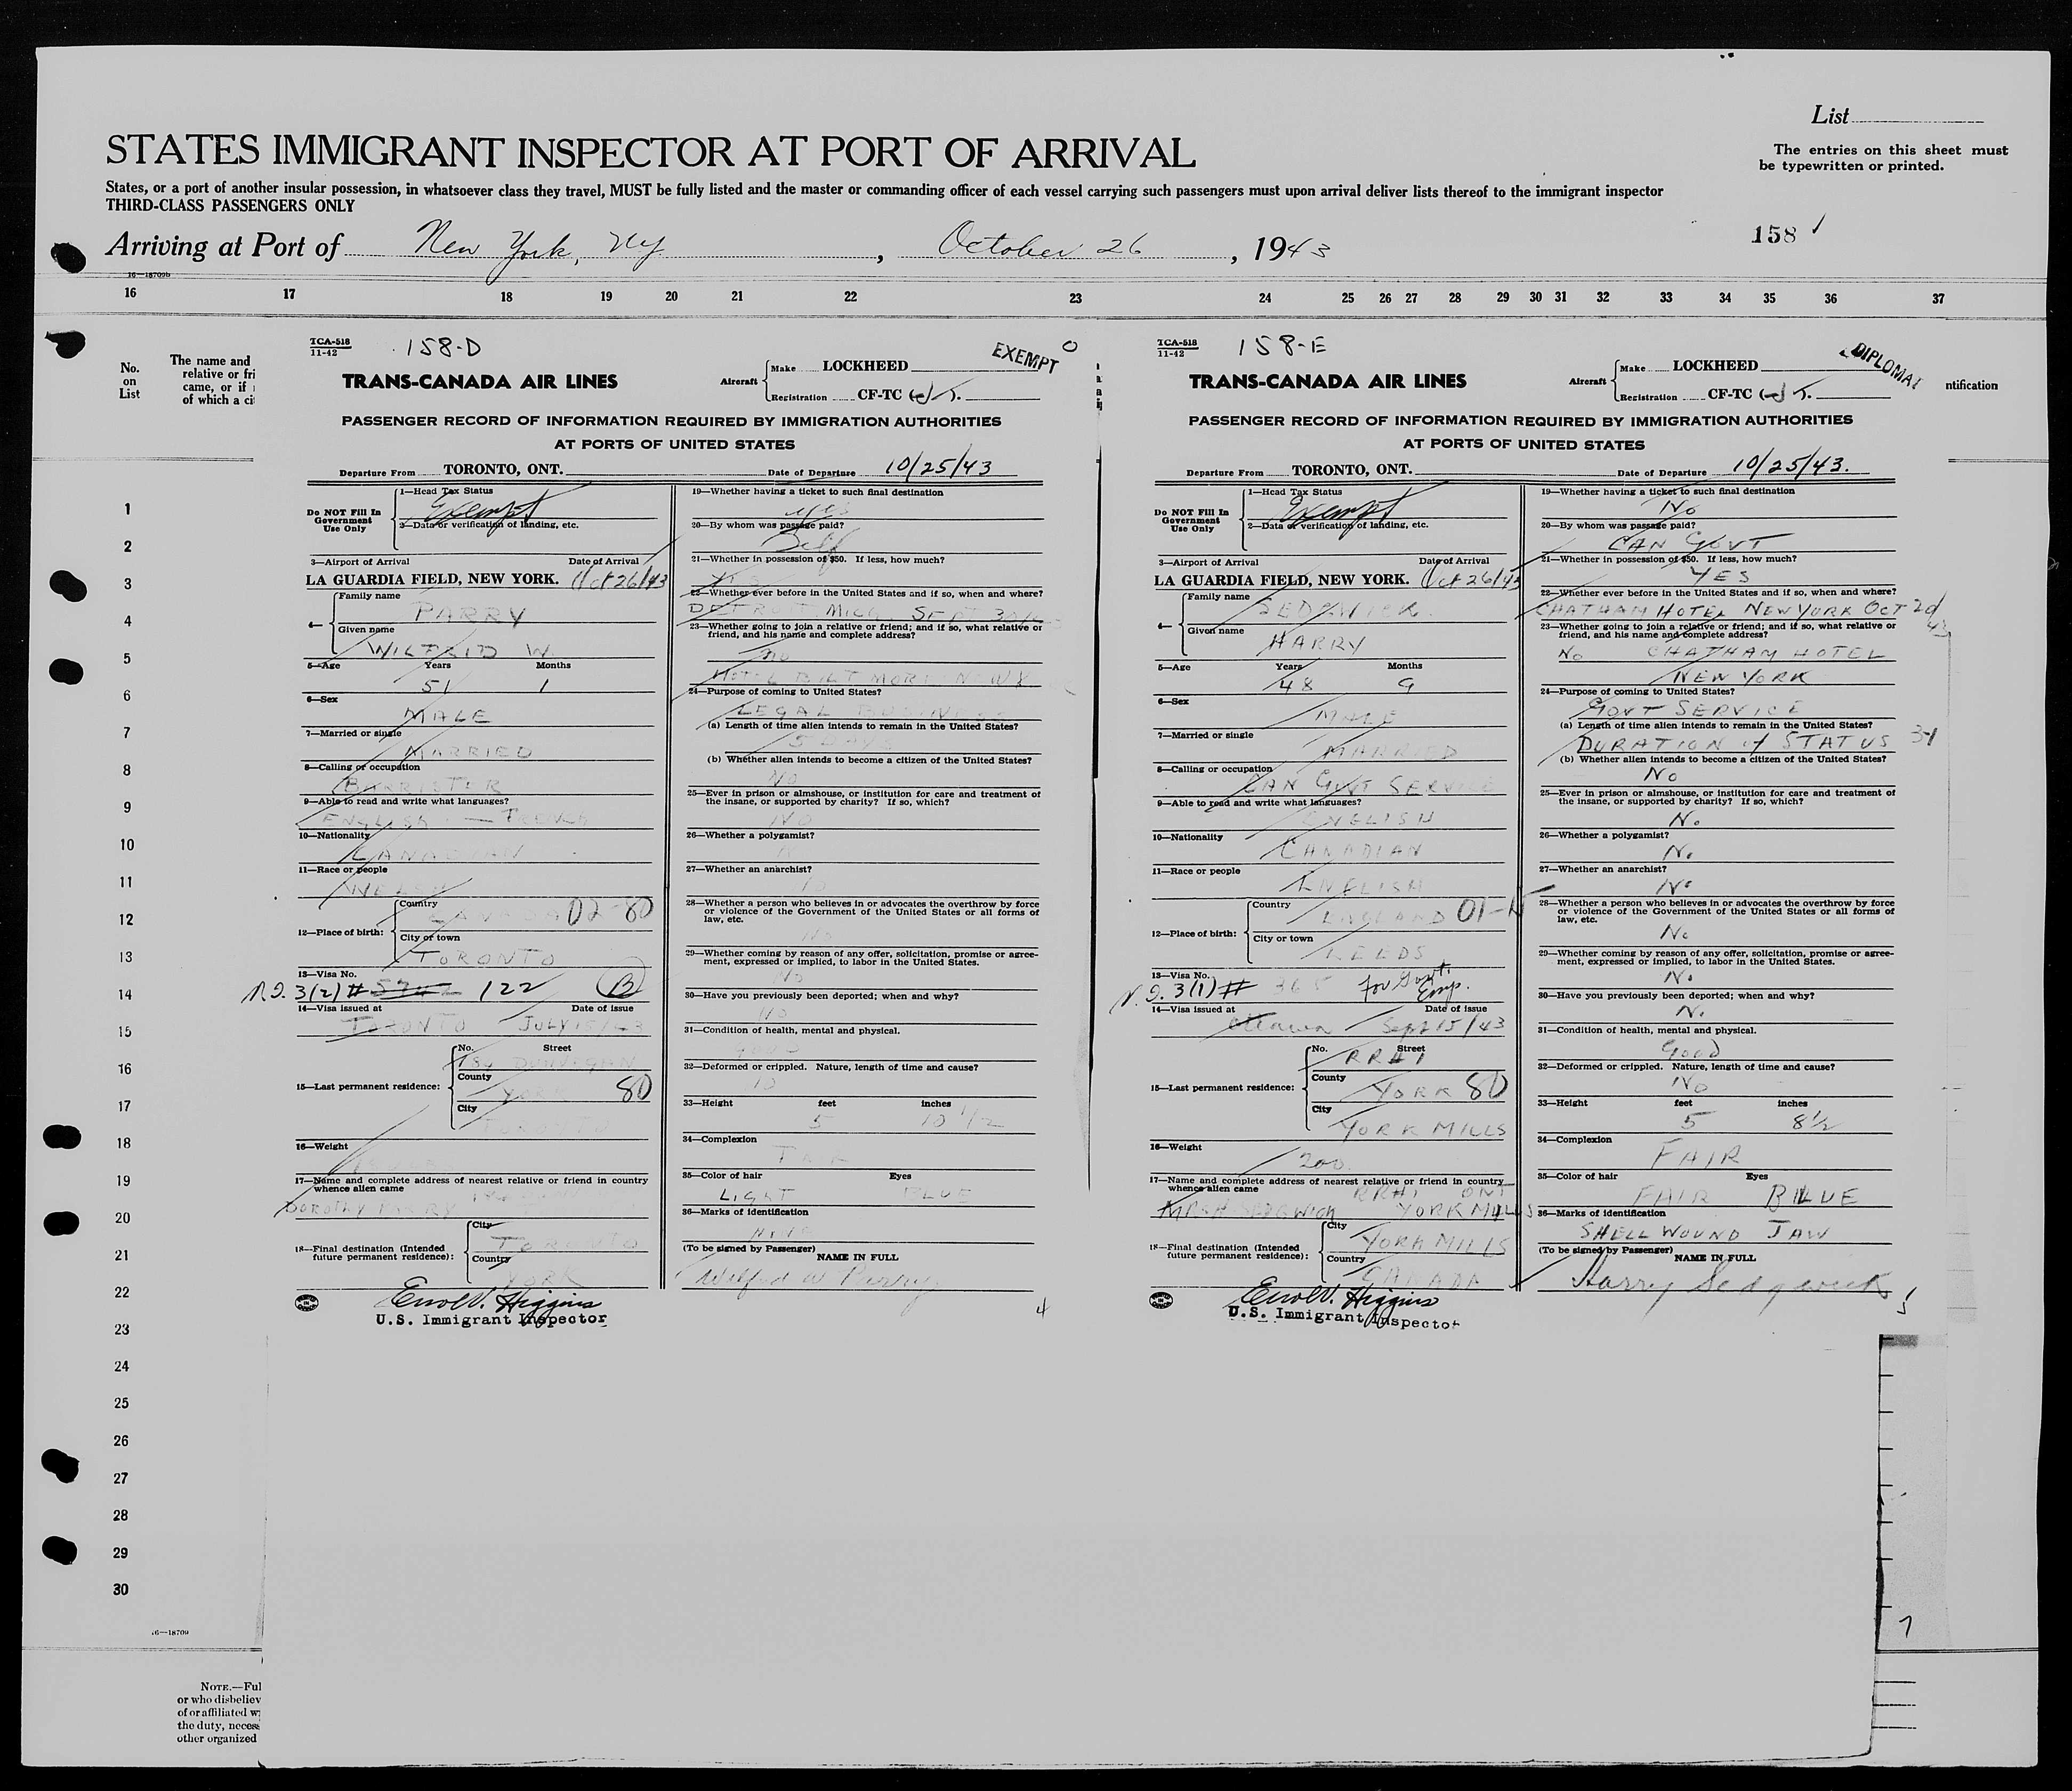 List
STATES IMMIGRANT INSPECTOR AT PORT OF ARRIVAL
The entries on this sheet must
be typewritten or printed.
States, or a port of another insular possession, in whatsoever class they travel, MUST be fully listed and the master or commanding officer of each vessel carrying such passengers must upon arrival deliver lists thereof to the immigrant inspector
THIRD-CLASS PASSENGERS ONLY
158
Arriving at Port of New York, NY, October 26, 1943
16—18709b
16 17 18 19 20 21 22 23 24 25 26 27 28 29 30 31 32 33 34 35 36 37
No.
on
List
The name and
relative or fri
came, or if
of which a ci
ntification
1
2
3
4
5
6
7
8
9
10
11
12
13
14
15
16
17
18
19
20
21
22
23
24
25
26
27
28
29
30
16—18709
NOTE.—Ful
or who disbeliev
of or affiliated w
the duty, neces
other organized
TCA-518
11-42
158-D
EXEMPT
TRANS-CANADA AIR LINES
Aircraft
Make LOCKHEED
Registration CF-TC
PASSENGER RECORD OF INFORMATION REQUIRED BY IMMIGRATION AUTHORITIES
AT PORTS OF UNITED STATES
Departure From TORONTO, ONT. Date of Departure 10/25/43
Do NOT Fill In
Government
Use Only
1—Head Tax Status
Exempt
2—Data or verification of landing, etc.
3—Airport of Arrival Date of Arrival
LA GUARDIA FIELD, NEW YORK. Oct 26/43
4—
Family name
PARRY
Given name
WILFRID W.
5—Age Years Months
51 1
6—Sex
MALE
7—Married or single
MARRIED
8—Calling or occupation
BARRISTER
9—Able to read and write what languages?
ENGLISH — FRENCH
10—Nationality
CANADIAN
11—Race or people
WELSH
12—Place of birth:
Country
CANADA 02-80
City or town
TORONTO
13—Visa No.
3(2) # 122 B
14—Visa issued at Date of issue
TORONTO JULY 15/43
15—Last permanent residence:
No. Street
184 DUNVEGAN
County
YORK 80
City
TORONTO
16—Weight
17—Name and complete address of nearest relative or friend in country
whence alien came
DOROTHY PARRY
18—Final destination (Intended
future permanent residence):
City
TORONTO
Country
YORK
U.S. Immigrant Inspector
19—Whether having a ticket to such final destination
yes
20—By whom was passage paid?
Self
21—Whether in possession of $50. If less, how much?
YES
22—Whether ever before in the United States and if so, when and where?
DETROIT MICH. SEPT 30/43
23—Whether going to join a relative or friend; and if so, what relative or
friend, and his name and complete address?
No
HOTEL BILTMORE NEW Y
24—Purpose of coming to United States?
LEGAL BUSINESS
(a) Length of time alien intends to remain in the United States?
5 DAYS
(b) Whether alien intends to become a citizen of the United States?
NO
25—Ever in prison or almshouse, or institution for care and treatment of
the insane, or supported by charity? If so, which?
NO
26—Whether a polygamist?
27—Whether an anarchist?
28—Whether a person who believes in or advocates the overthrow by force
or violence of the Government of the United States or all forms of
law, etc.
No
29—Whether coming by reason of any offer, solicitation, promise or agree-
ment, expressed or implied, to labor in the United States.
No
30—Have you previously been deported; when and why?
NO
31—Condition of health, mental and physical.
GOOD
32—Deformed or crippled. Nature, length of time and cause?
33—Height feet inches
5 10 1/2
34—Complexion
FAIR
35—Color of hair Eyes
LIGHT BLUE
36—Marks of identification
(To be signed by Passenger) NAME IN FULL
Wilfrid W Parry
4
TCA-518
11-42
158-E
DIPLOMAT
TRANS-CANADA AIR LINES
Aircraft
Make LOCKHEED
Registration CF-TC
PASSENGER RECORD OF INFORMATION REQUIRED BY IMMIGRATION AUTHORITIES
AT PORTS OF UNITED STATES
Departure From TORONTO, ONT. Date of Departure 10/25/43.
Do NOT Fill In
Government
Use Only
1—Head Tax Status
Exempt
2—Data or verification of landing, etc.
3—Airport of Arrival Date of Arrival
LA GUARDIA FIELD, NEW YORK. Oct 26/43
4—
Family name
SEDGWICK
Given name
HARRY
5—Age Years Months
48 9
6—Sex
MALE
7—Married or single
MARRIED
8—Calling or occupation
CAN GOVT SERVICE
9—Able to read and write what languages?
ENGLISH
10—Nationality
CANADIAN
11—Race or people
ENGLISH
12—Place of birth:
Country
ENGLAND
City or town
LEEDS
13—Visa No.
3(1) # 365 for Govt. Emp.
14—Visa issued at Date of issue
Ottawa Sept 15/43
15—Last permanent residence:
No. Street
RR#1
County
YORK 80
City
YORK MILLS
16—Weight
200
17—Name and complete address of nearest relative or friend in country
whence alien came
RR#1 ONT
MRS H SEDGWICK YORK MILLS
18—Final destination (Intended
future permanent residence):
City
YORK MILLS
Country
CANADA
U.S. Immigrant Inspector
19—Whether having a ticket to such final destination
No
20—By whom was passage paid?
CAN GOVT
21—Whether in possession of $50. If less, how much?
YES
22—Whether ever before in the United States and if so, when and where?
CHATHAM HOTEL NEW YORK OCT 20/43
23—Whether going to join a relative or friend; and if so, what relative or
friend, and his name and complete address?
No CHATHAM HOTEL
NEW YORK
24—Purpose of coming to United States?
GOVT SERVICE
(a) Length of time alien intends to remain in the United States?
DURATION of STATUS
(b) Whether alien intends to become a citizen of the United States?
No
25—Ever in prison or almshouse, or institution for care and treatment of
the insane, or supported by charity? If so, which?
No
26—Whether a polygamist?
No
27—Whether an anarchist?
No
28—Whether a person who believes in or advocates the overthrow by force
or violence of the Government of the United States or all forms of
law, etc.
No
29—Whether coming by reason of any offer, solicitation, promise or agree-
ment, expressed or implied, to labor in the United States.
No
30—Have you previously been deported; when and why?
No
31—Condition of health, mental and physical.
Good
32—Deformed or crippled. Nature, length of time and cause?
No
33—Height feet inches
5 8½
34—Complexion
FAIR
35—Color of hair Eyes
FAIR BLUE
36—Marks of identification
SHELL WOUND JAW
(To be signed by Passenger) NAME IN FULL
Harry Sedgwick